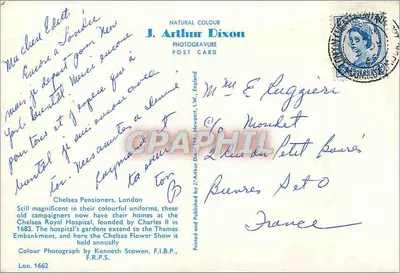 NATURAL COLOUR
J. Arthur Dixon
PHOTOGRAVURE
POST CARD
Ma chère Edith
Encore à Londres
mais je repart pour New
York bientôt Merci encore
pour tous et j'espère que à
bientôt je suis encore avec
toi. Mes amitiés à
ta soeur
Mme E Ruggieri
c/o Mouhet
2 rue du Petit
Bievres S et O
France
Printed and Published by J. Arthur Dixon Ltd., Newport, I.W., England
CPAPHIL
Chelsea Pensioners, London
Still magnificent in their colourful uniforms, these
old campaigners now have their homes at the
Chelsea Royal Hospital, founded by Charles II in
1682. The hospital's gardens extend to the Thames
Embankment, and here the Chelsea Flower Show is
held annually
Colour Photograph by Kenneth Scowen, F.I.B.P.,
F.R.P.S.
Lon. 1662